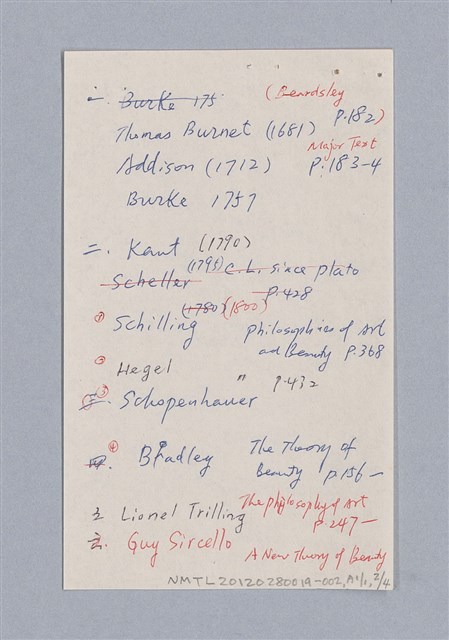 一. Burke 175 (Beardsley
Thomas Burnet (1681) p.182)
Major Text
Addison (1712) p.183-4
Burke 1757
二. Kant (1790)
(1795) C.L. since plato
Scheller
p.428
(1780) (1800)
① Schilling philosophies of Art
and Beauty p.368
② Hegel
" p.432
三. ③ Schopenhauer
④
四. Bradley The Theory of
Beauty p.156-
The philosophy of Art
五 Lionel Trilling p.247-
六. Guy Sircello
A New Theory of Beauty
NMTL20120280019-002, A1/1, 2/4